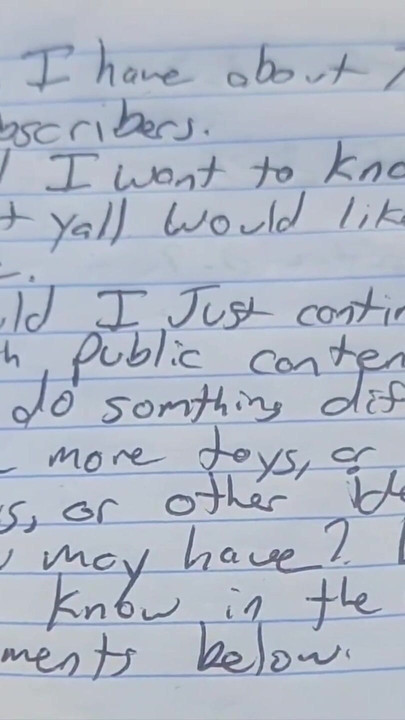 I have about 7
bscribers.
I want to kno
t yall would lik
ld I Just contin
h public conten
do somthing dif
more toys, or
s, or other ide
may have?
know in the
ments below.